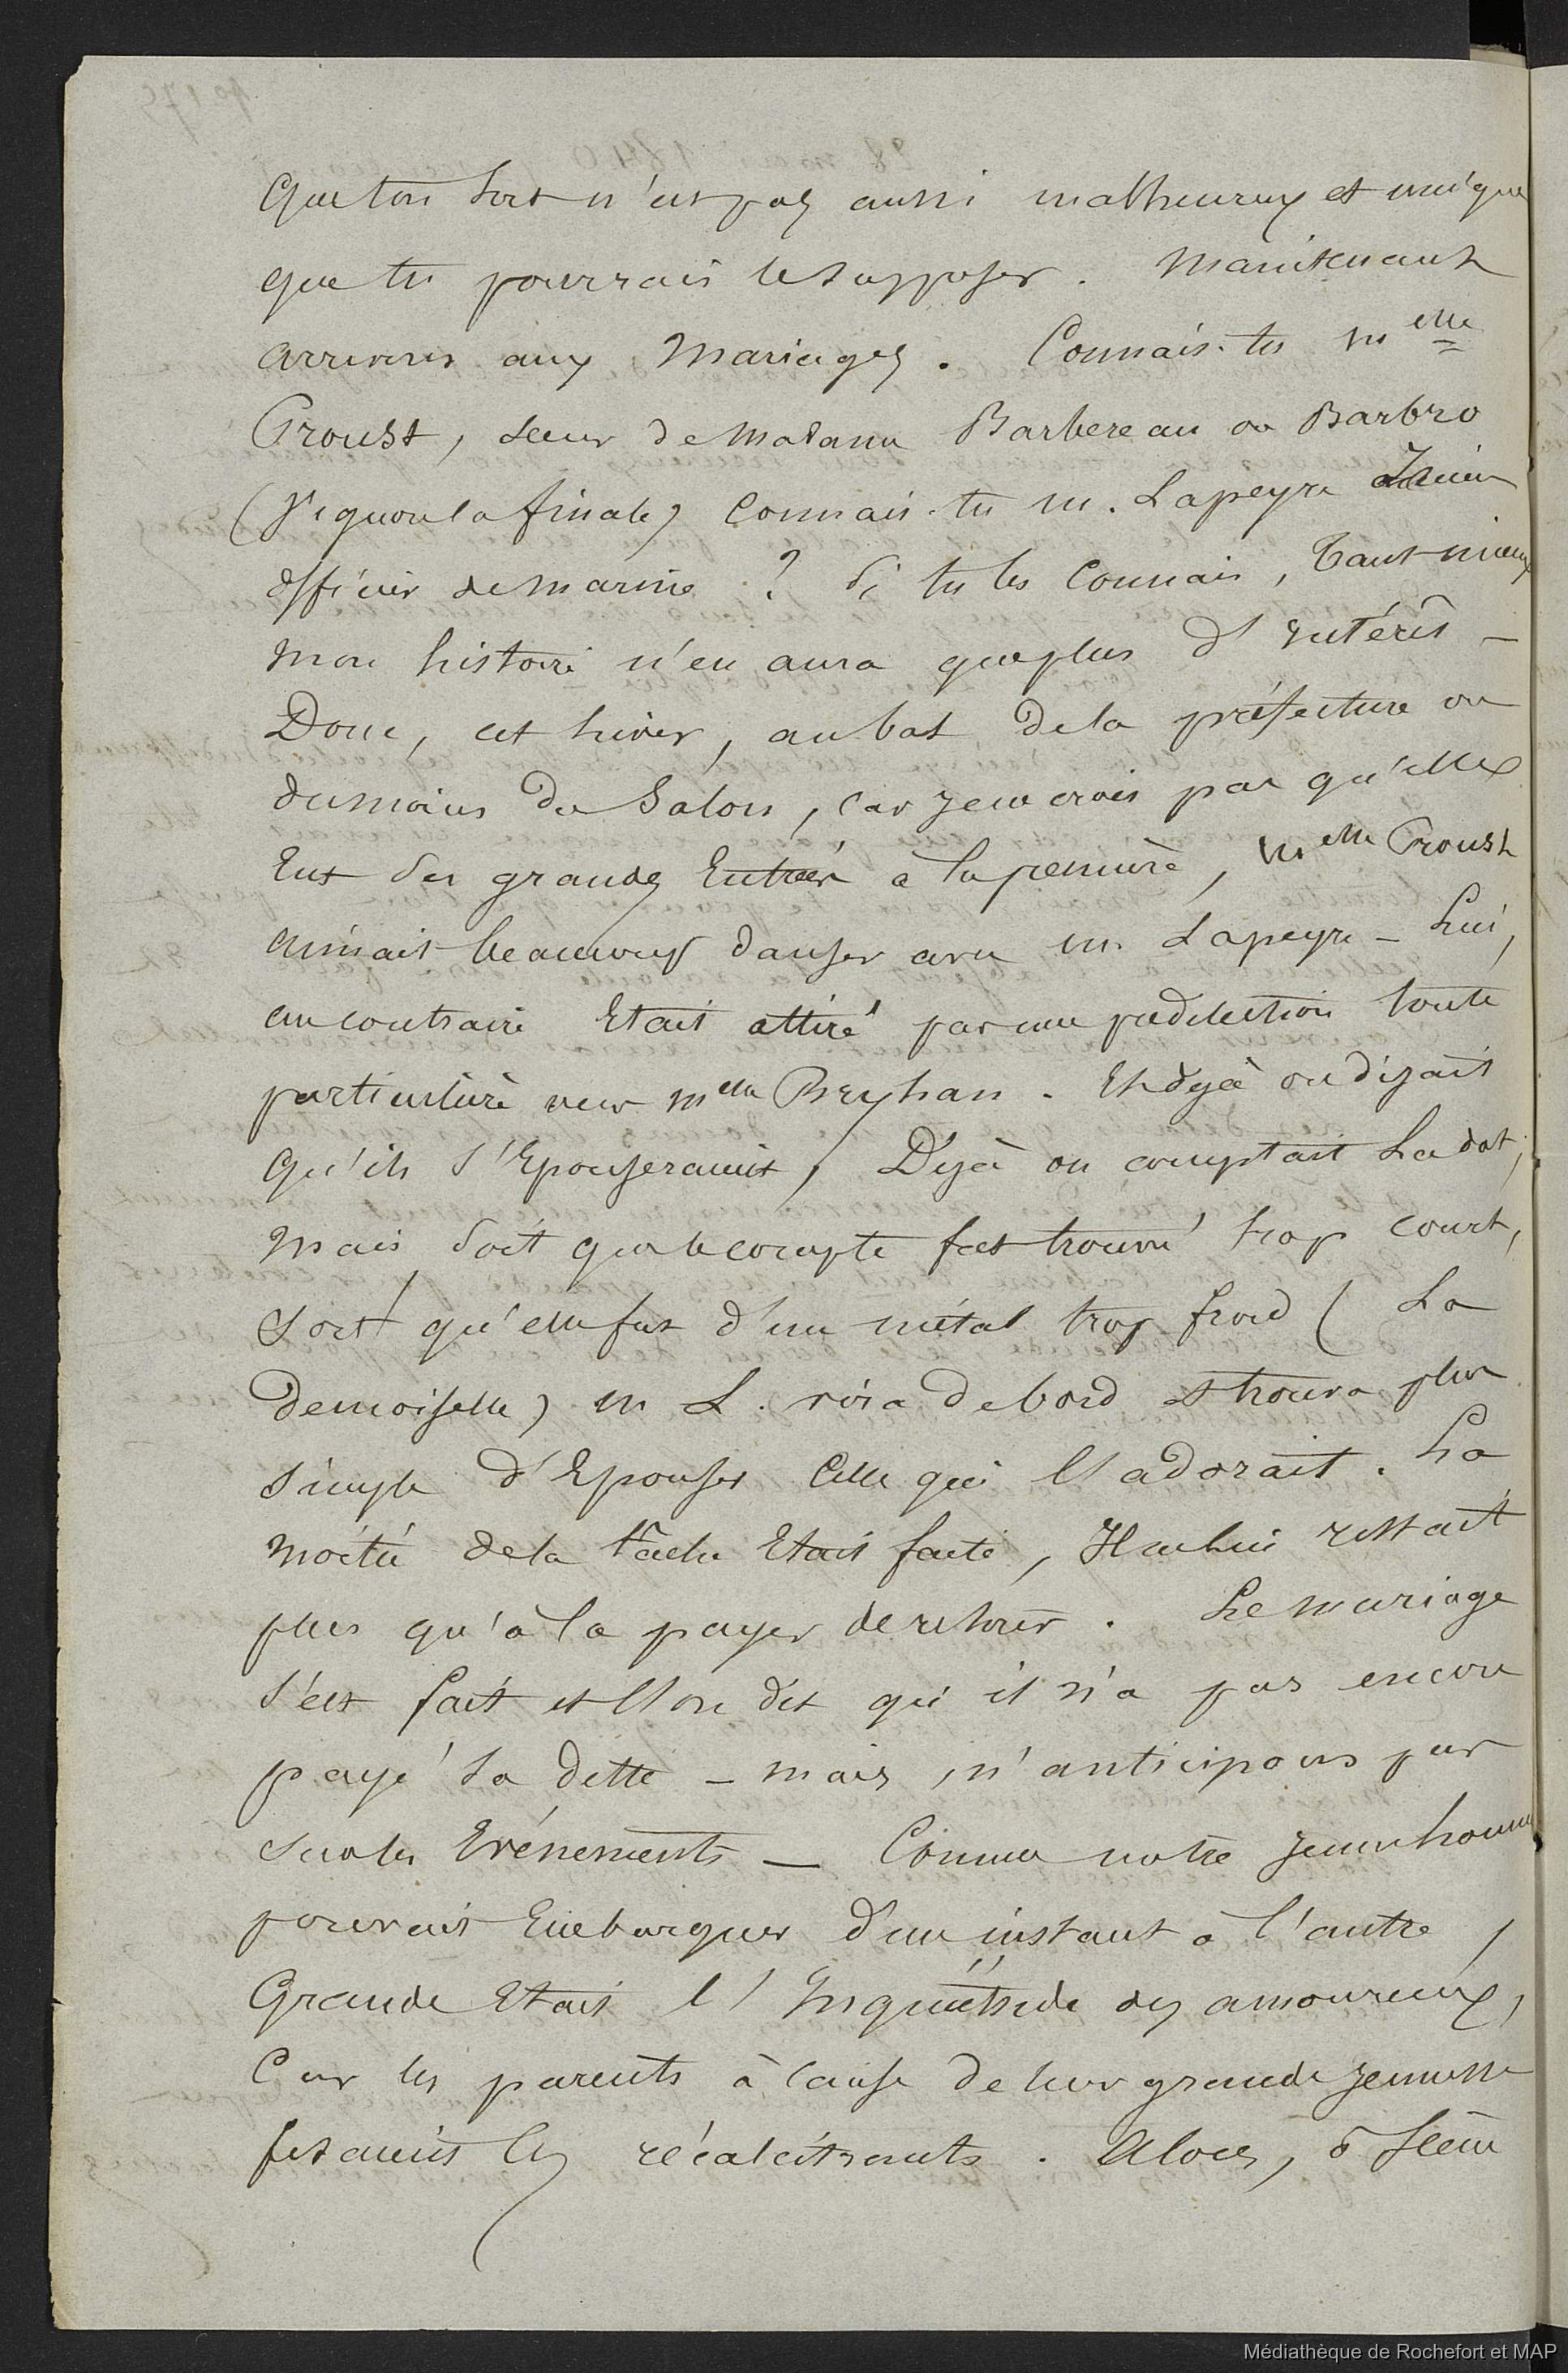 que ton sort n'est pas aussi malheureux et unique
que tu pourrais le supposer. Maintenant
arrivons aux mariages. Connais-tu Melle
Proust, sœur de madame Barbereau ou Barbro
(j'ignore la finale) connais-tu m. Lapeyre
officier de marine ? Si tu les connais, tant mieux
mon histoire n'en aura que plus d'intérêt –
Donc, cet hiver, au bal de la préfecture ou
du moins du salon, car je ne crois pas qu'elle
eut ses grandes Entrées à la première, Melle Proust
aimait beaucoup danser avec m. Lapeyre – Lui,
au contraire Etait attiré par une prédilection toute
particulière vers melle Breyhan. Et déjà on disait
qu'ils s'Epouseraient, Déjà on comptait la dot,
mais soit que le compte fut trouvé trop court,
soit qu'elle fut d'un métal trop froid (La
demoiselle) m L. vira de bord et trouva plus
simple d'Epouser celle qui l'adorait. La
moitié de la tâche Etait faite, Il ne lui restait
plus qu'à la payer de retour. Le mariage
s'est fait et l'on dit qu'il n'a pas encore
payé sa dette – mais, n'anticipons pas
sur les Evénements – Comme notre jeune homme
pouvait Embarquer d'un instant à l'autre,
Grande Etait l'Inquiétude des amoureux,
Car les parents à cause de leur grande jeunesse
fesaient les récalcitrants. Alors, ô
Médiathèque de Rochefort et MAP